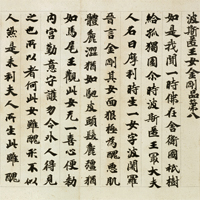 波斯匿王女金剛品第八
如是我聞一時佛在舍衛國祇樹
給孤獨園尒時波斯匿王冣大夫
人名曰摩利時生一女字波闍羅
晉言金剛其女面狠極為醜惡肌
體麁澀猶如駝皮頭髮麁彊猶
如馬尾王觀此女无一喜心便勅
內宮勤意守護勿令外人得見
之也所以者何此女雖醜形不似
人然是末利夫人所生此雖醜